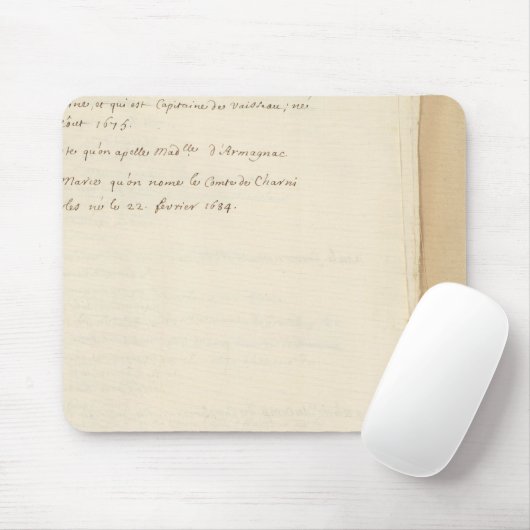 ine, et qui est Capitaine de Vaisseau; né
Août 1675.
te qu'on apelle Mad.lle d'Armagnac
Marie qu'on nome le Comte de Charni
les né le 22. fevrier 1684.